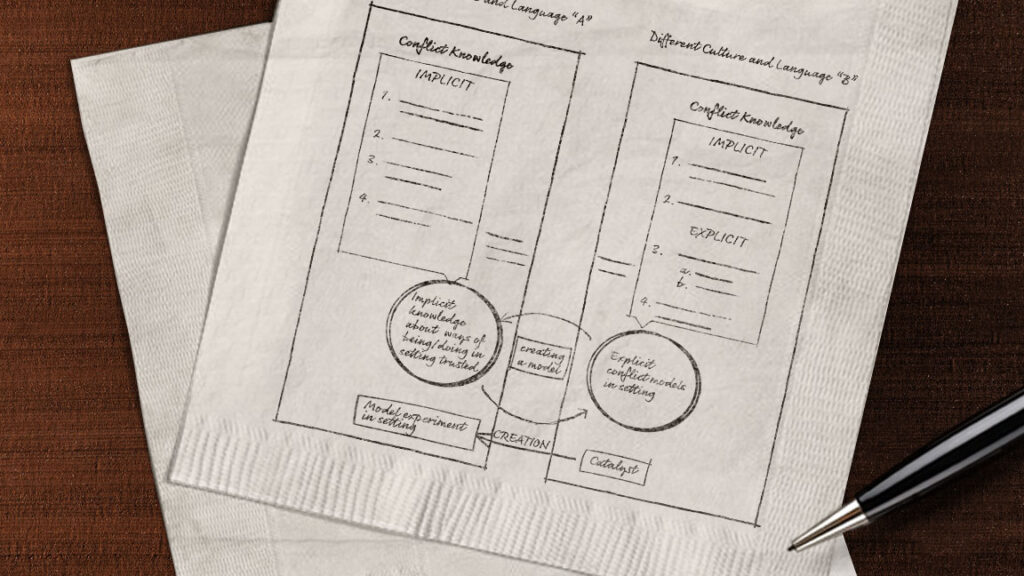 and Language "A"
Conflict Knowledge
IMPLICIT
1.
2.
3.
4.
Implicit
knowledge
about ways of
being/doing in
setting trusted
Model experiment
in setting
creating
a model
CREATION
Different Culture and Language "B"
Conflict Knowledge
IMPLICIT
1.
2.
EXPLICIT
3.
a.
b.
4.
Explicit
conflict models
in setting
Catalyst